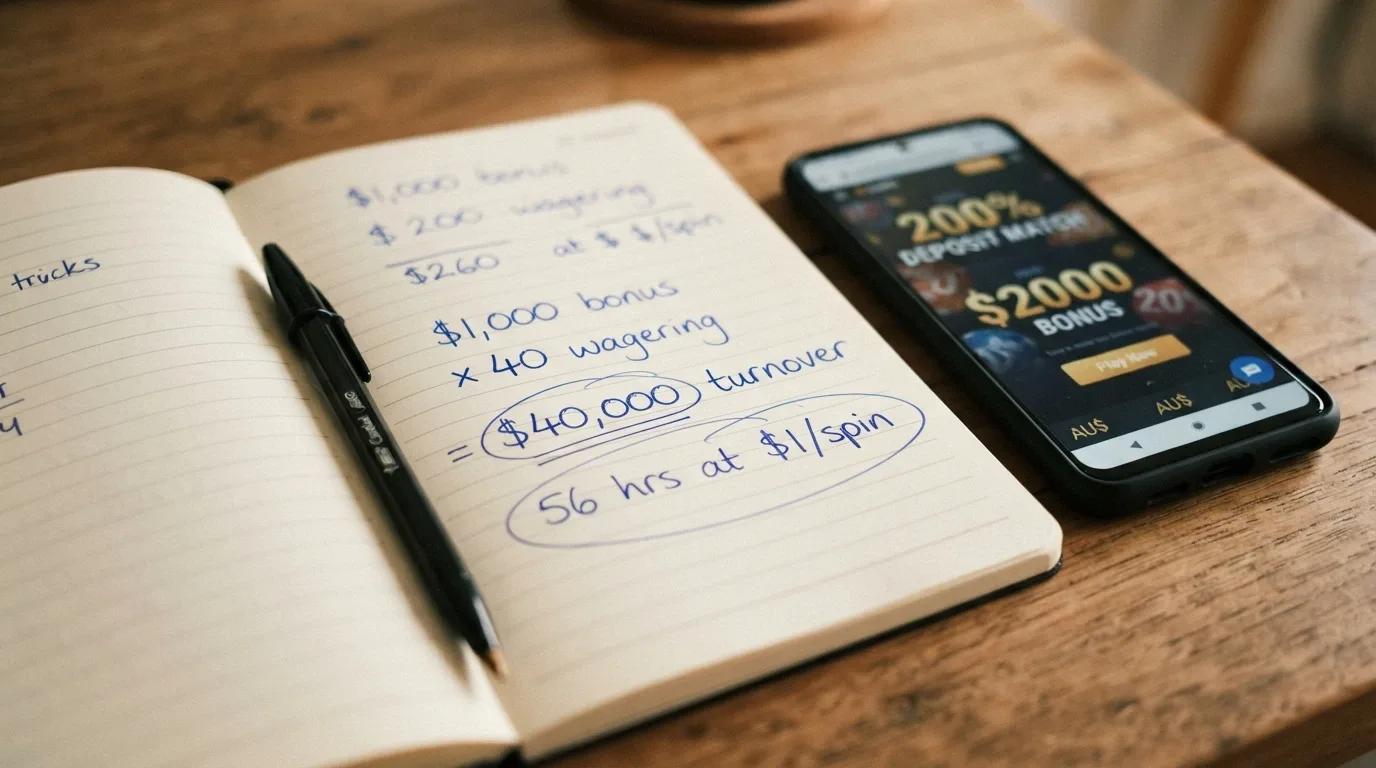 trucks
$1,000 bonus
$200 wagering
$260 at $ $/spin
$1,000 bonus
× 40 wagering
= $40,000 turnover
56 hrs at $1/spin
200%
DEPOSIT MATCH
$2000
BONUS
20
Play Now
AU$ AU$ AU